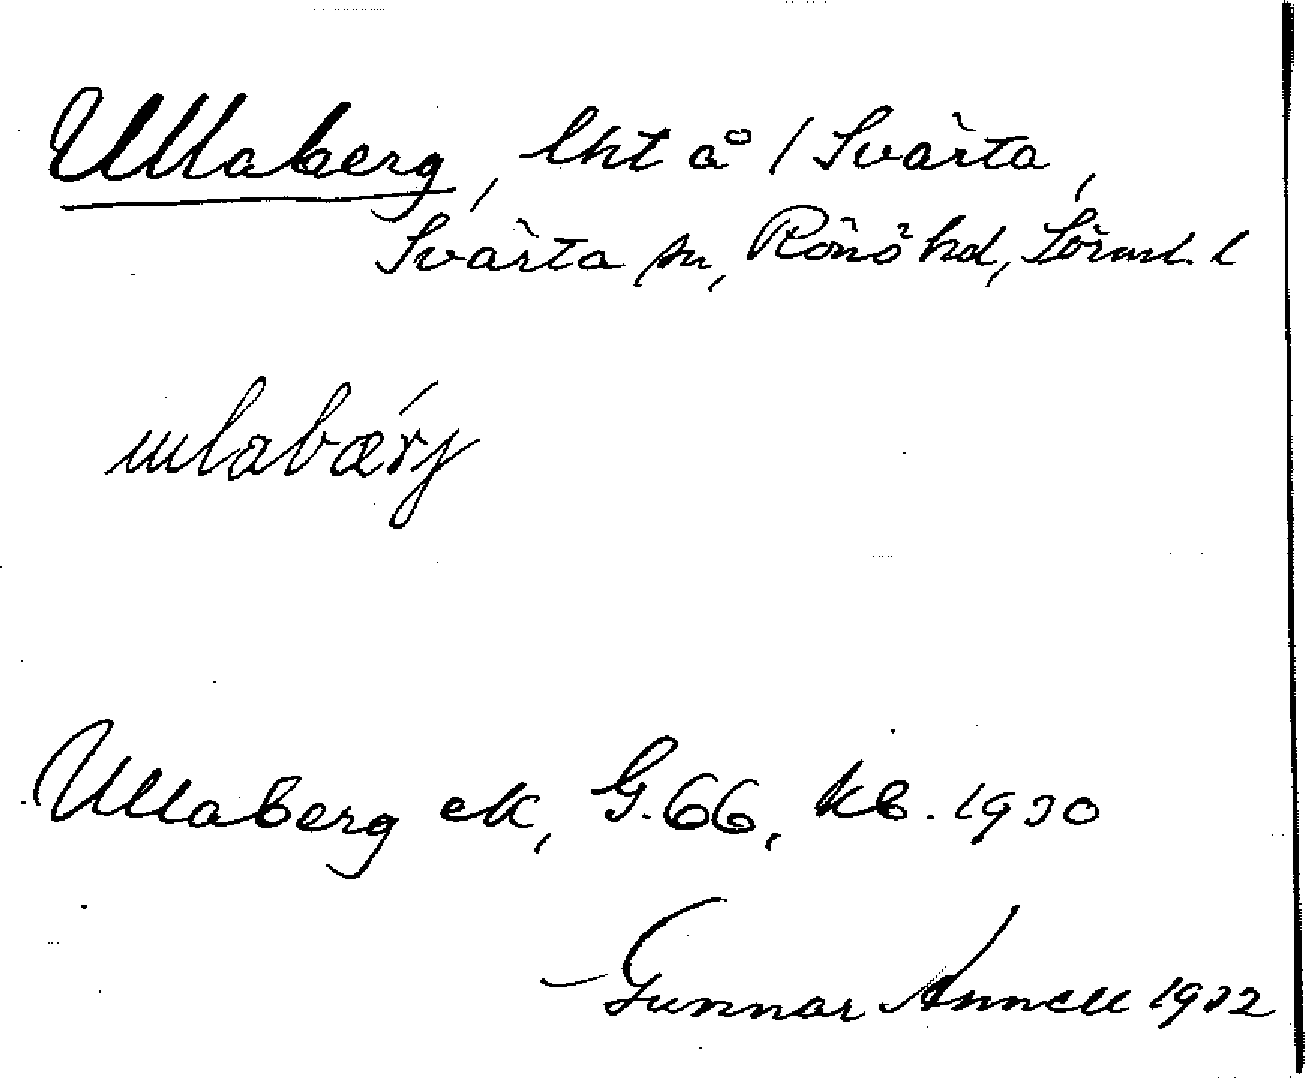 Ullaberg, lht å / Svärta,
Svärta sn, Rönö hd, Sörml. l
ulabærj
Ullaberg ek, G. 66, kb. 1930
Gunnar Annell 1932